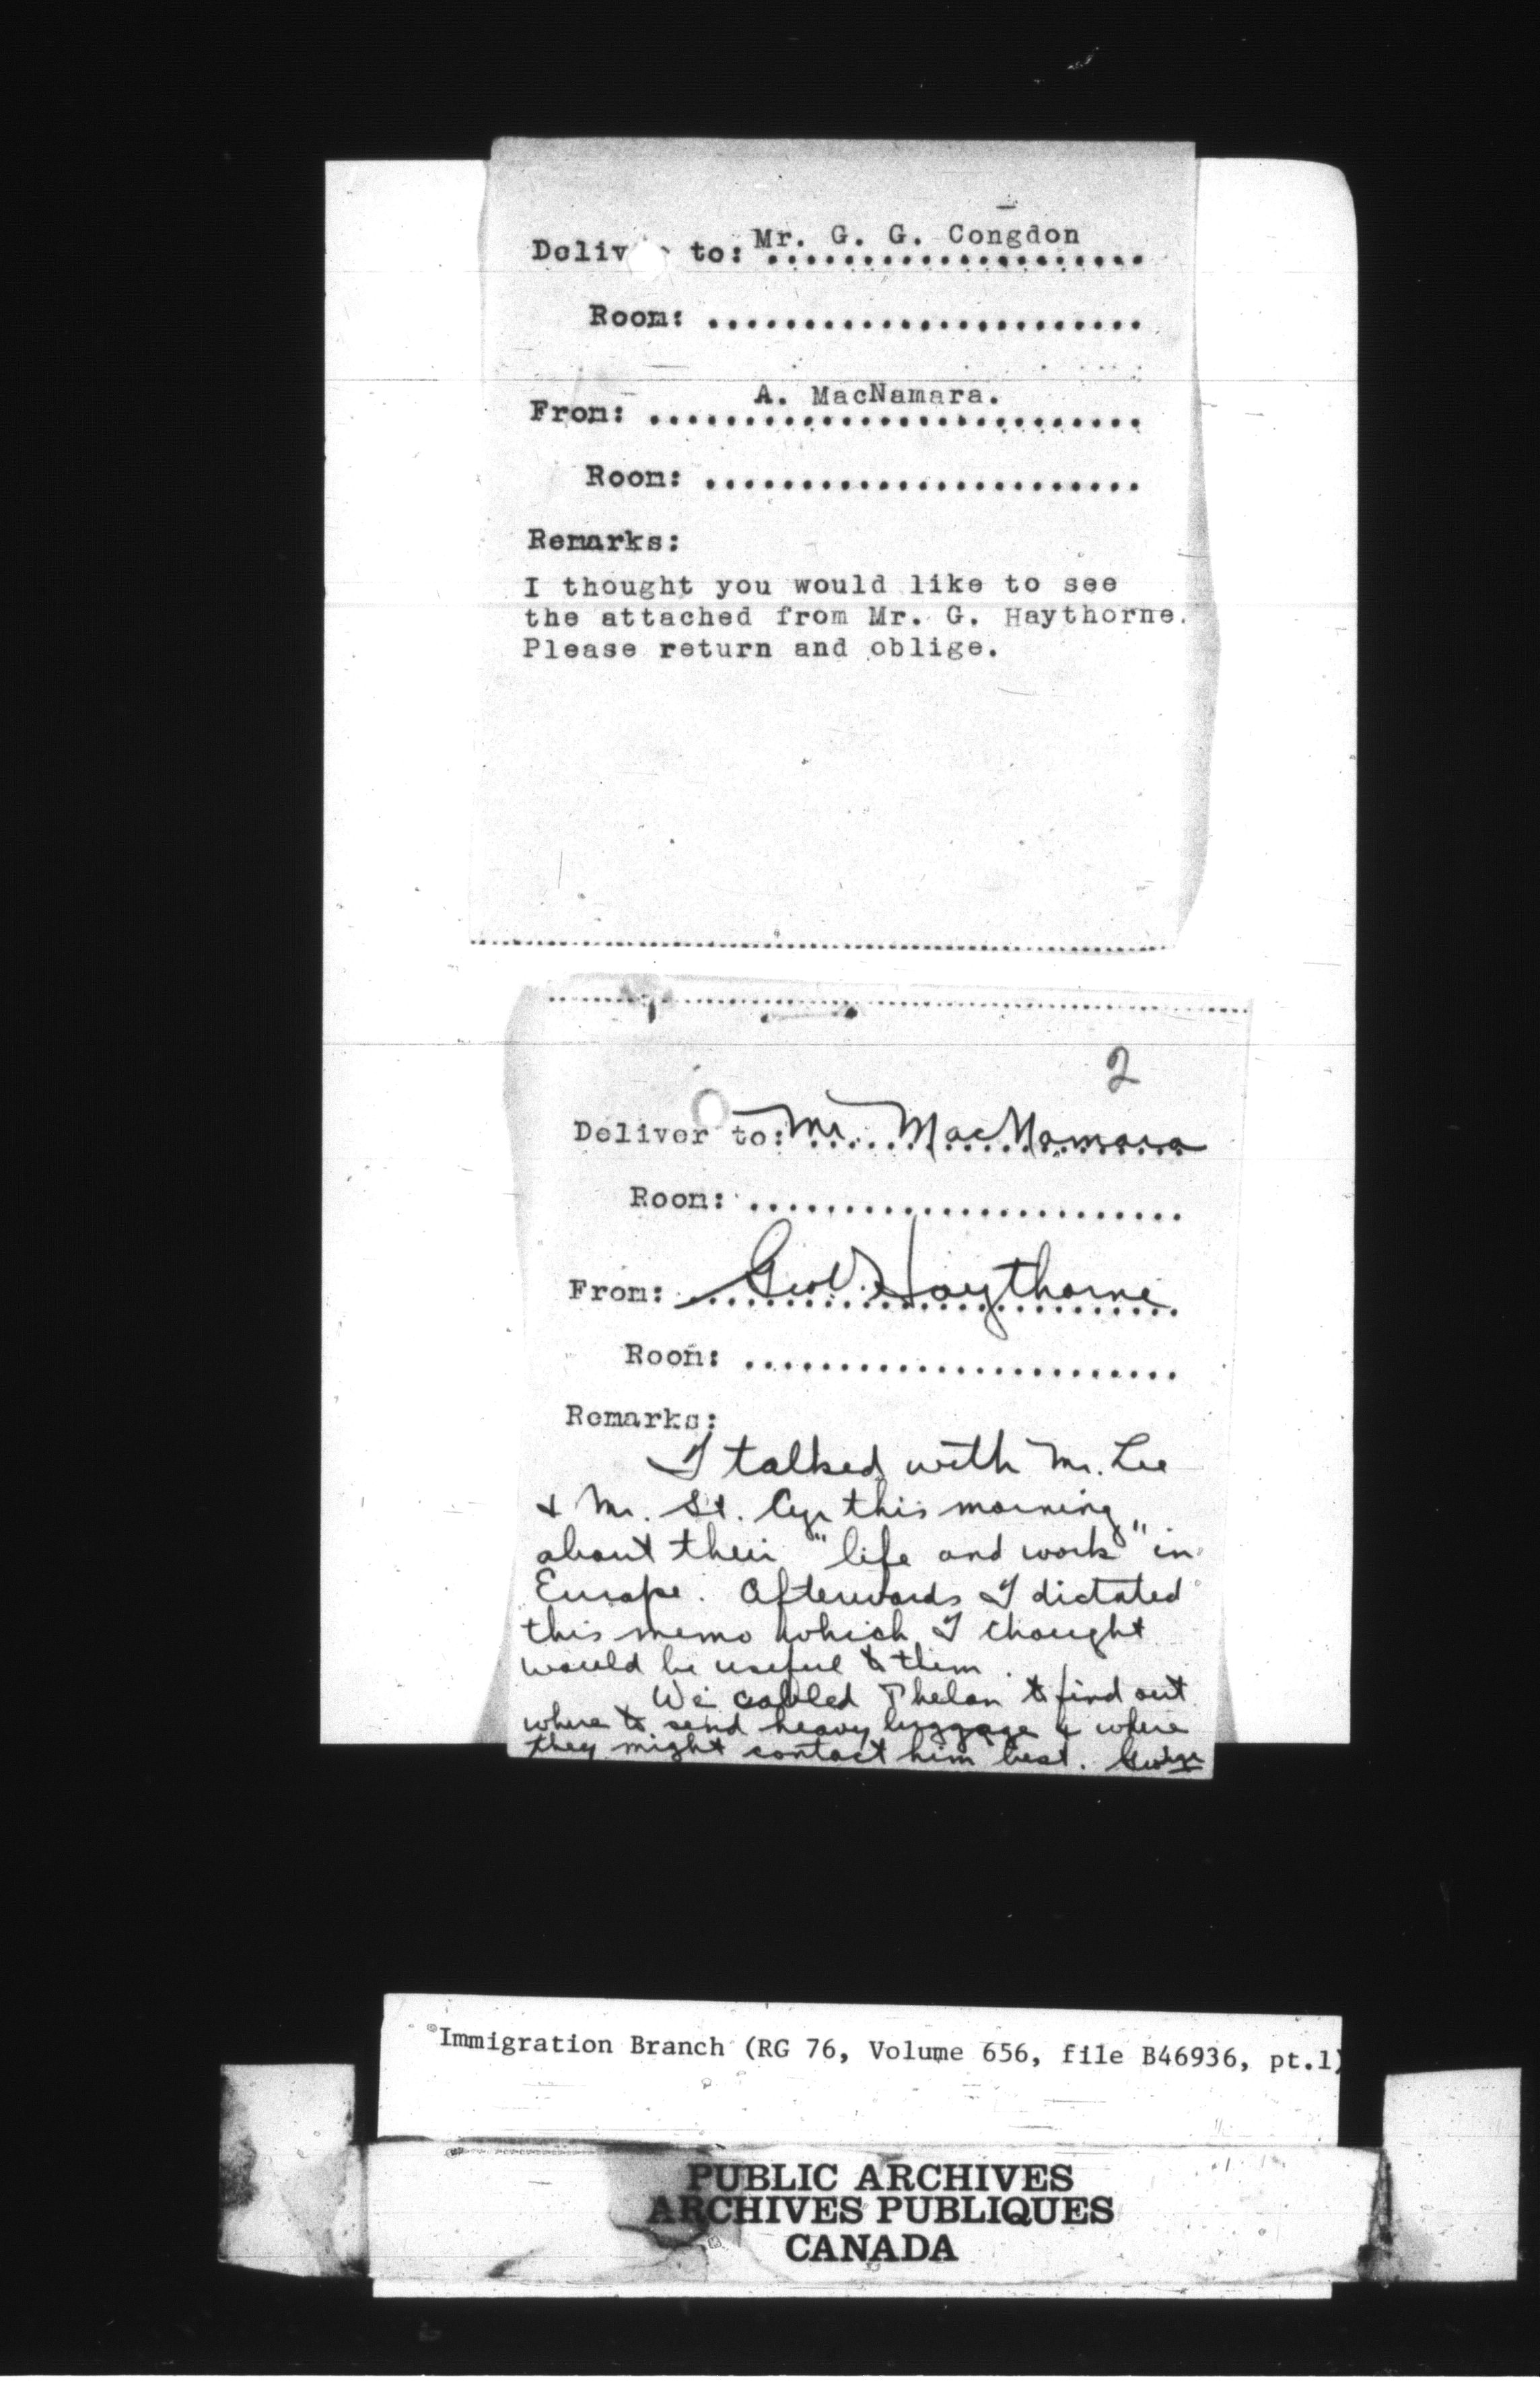 Deliv to: Mr. G. G. Congdon
Room: ........................
From: A. MacNamara.
Room: ........................
Remarks:
I thought you would like to see
the attached from Mr. G. Haythorne.
Please return and oblige.
2
Deliver to: Mr. MacNamara
Room: ........................
From: Geo V. Haythorne
Room: ........................
Remarks:
I talked with Mr. Lee
& Mr. St. Cyr this morning
about their "life and work" in
Europe. Afterwards I dictated
this memo which I thought
would be useful to them.
We cabled Phelan to find out
where to send heavy luggage & where
they might contact him best. George
Immigration Branch (RG 76, Volume 656, file B46936, pt.1)
PUBLIC ARCHIVES
ARCHIVES PUBLIQUES
CANADA